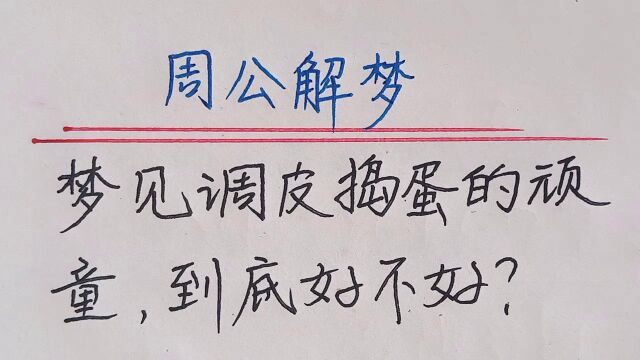 周公解梦
梦见调皮捣蛋的顽
童,到底好不好?